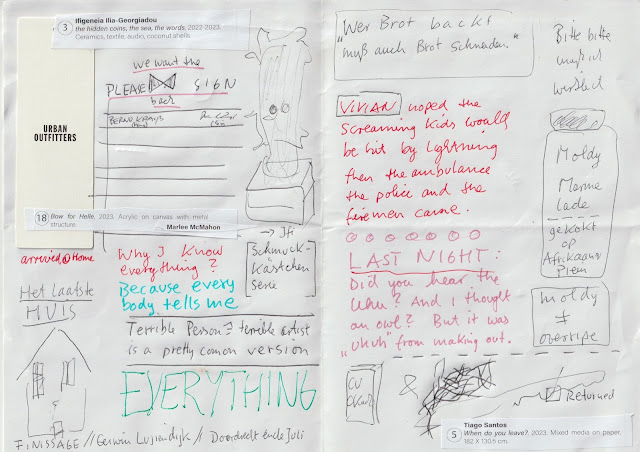 3
Ifigeneia Ilia-Georgiadou
the hidden coins, the sea, the words, 2022-2023.
Ceramics, textile, audio, coconut shells.
we want the
PLEASE SIGN
back
URBAN
OUTFITTERS
18
Bow for Helle, 2023. Acrylic on canvas with metal
structure.
Marlee McMahon
arrived @ Home
Het Laatste
HUIS
Why I know
everything?
Because every
body tells me
→ Ifi
Schmuck-
Kästchen
Serie
Terrible Person = terrible artist
is a pretty common version
EVERYTHING
FINISSAGE // Gerwin Luijendijk // Doordrecht ende Juli
"Wer Brot backt
muß auch Brot Schneiden."
Bitte bitte
VIVIAN hoped the
screaming kids would
be hit by lightning
then the ambulance
the police and the
firemen came.
LAST NIGHT:
Did you hear the
Uhu? And I thought
an owl? But it was
"Uhuh" from making out.
Moldy
Marme
lade
gekakt
op
Afrikaans
Plein
moldy
≠
overripe
&
Returned
5
Tiago Santos
When do you leave?, 2023. Mixed media on paper,
182 X 130.5 cm.